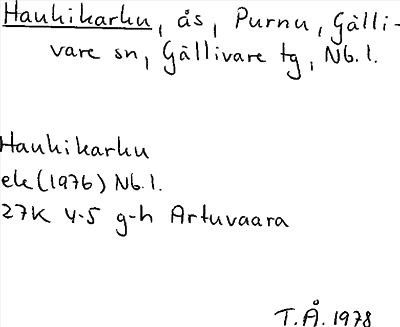 Haukikarku, ås, Purnu, Gälli-
vare sn, Gällivare tg, Nb.l.
Haukikarku
ek (1976) Nb.l.
27K 4-5 g-h Artuvaara
T.Å. 1978